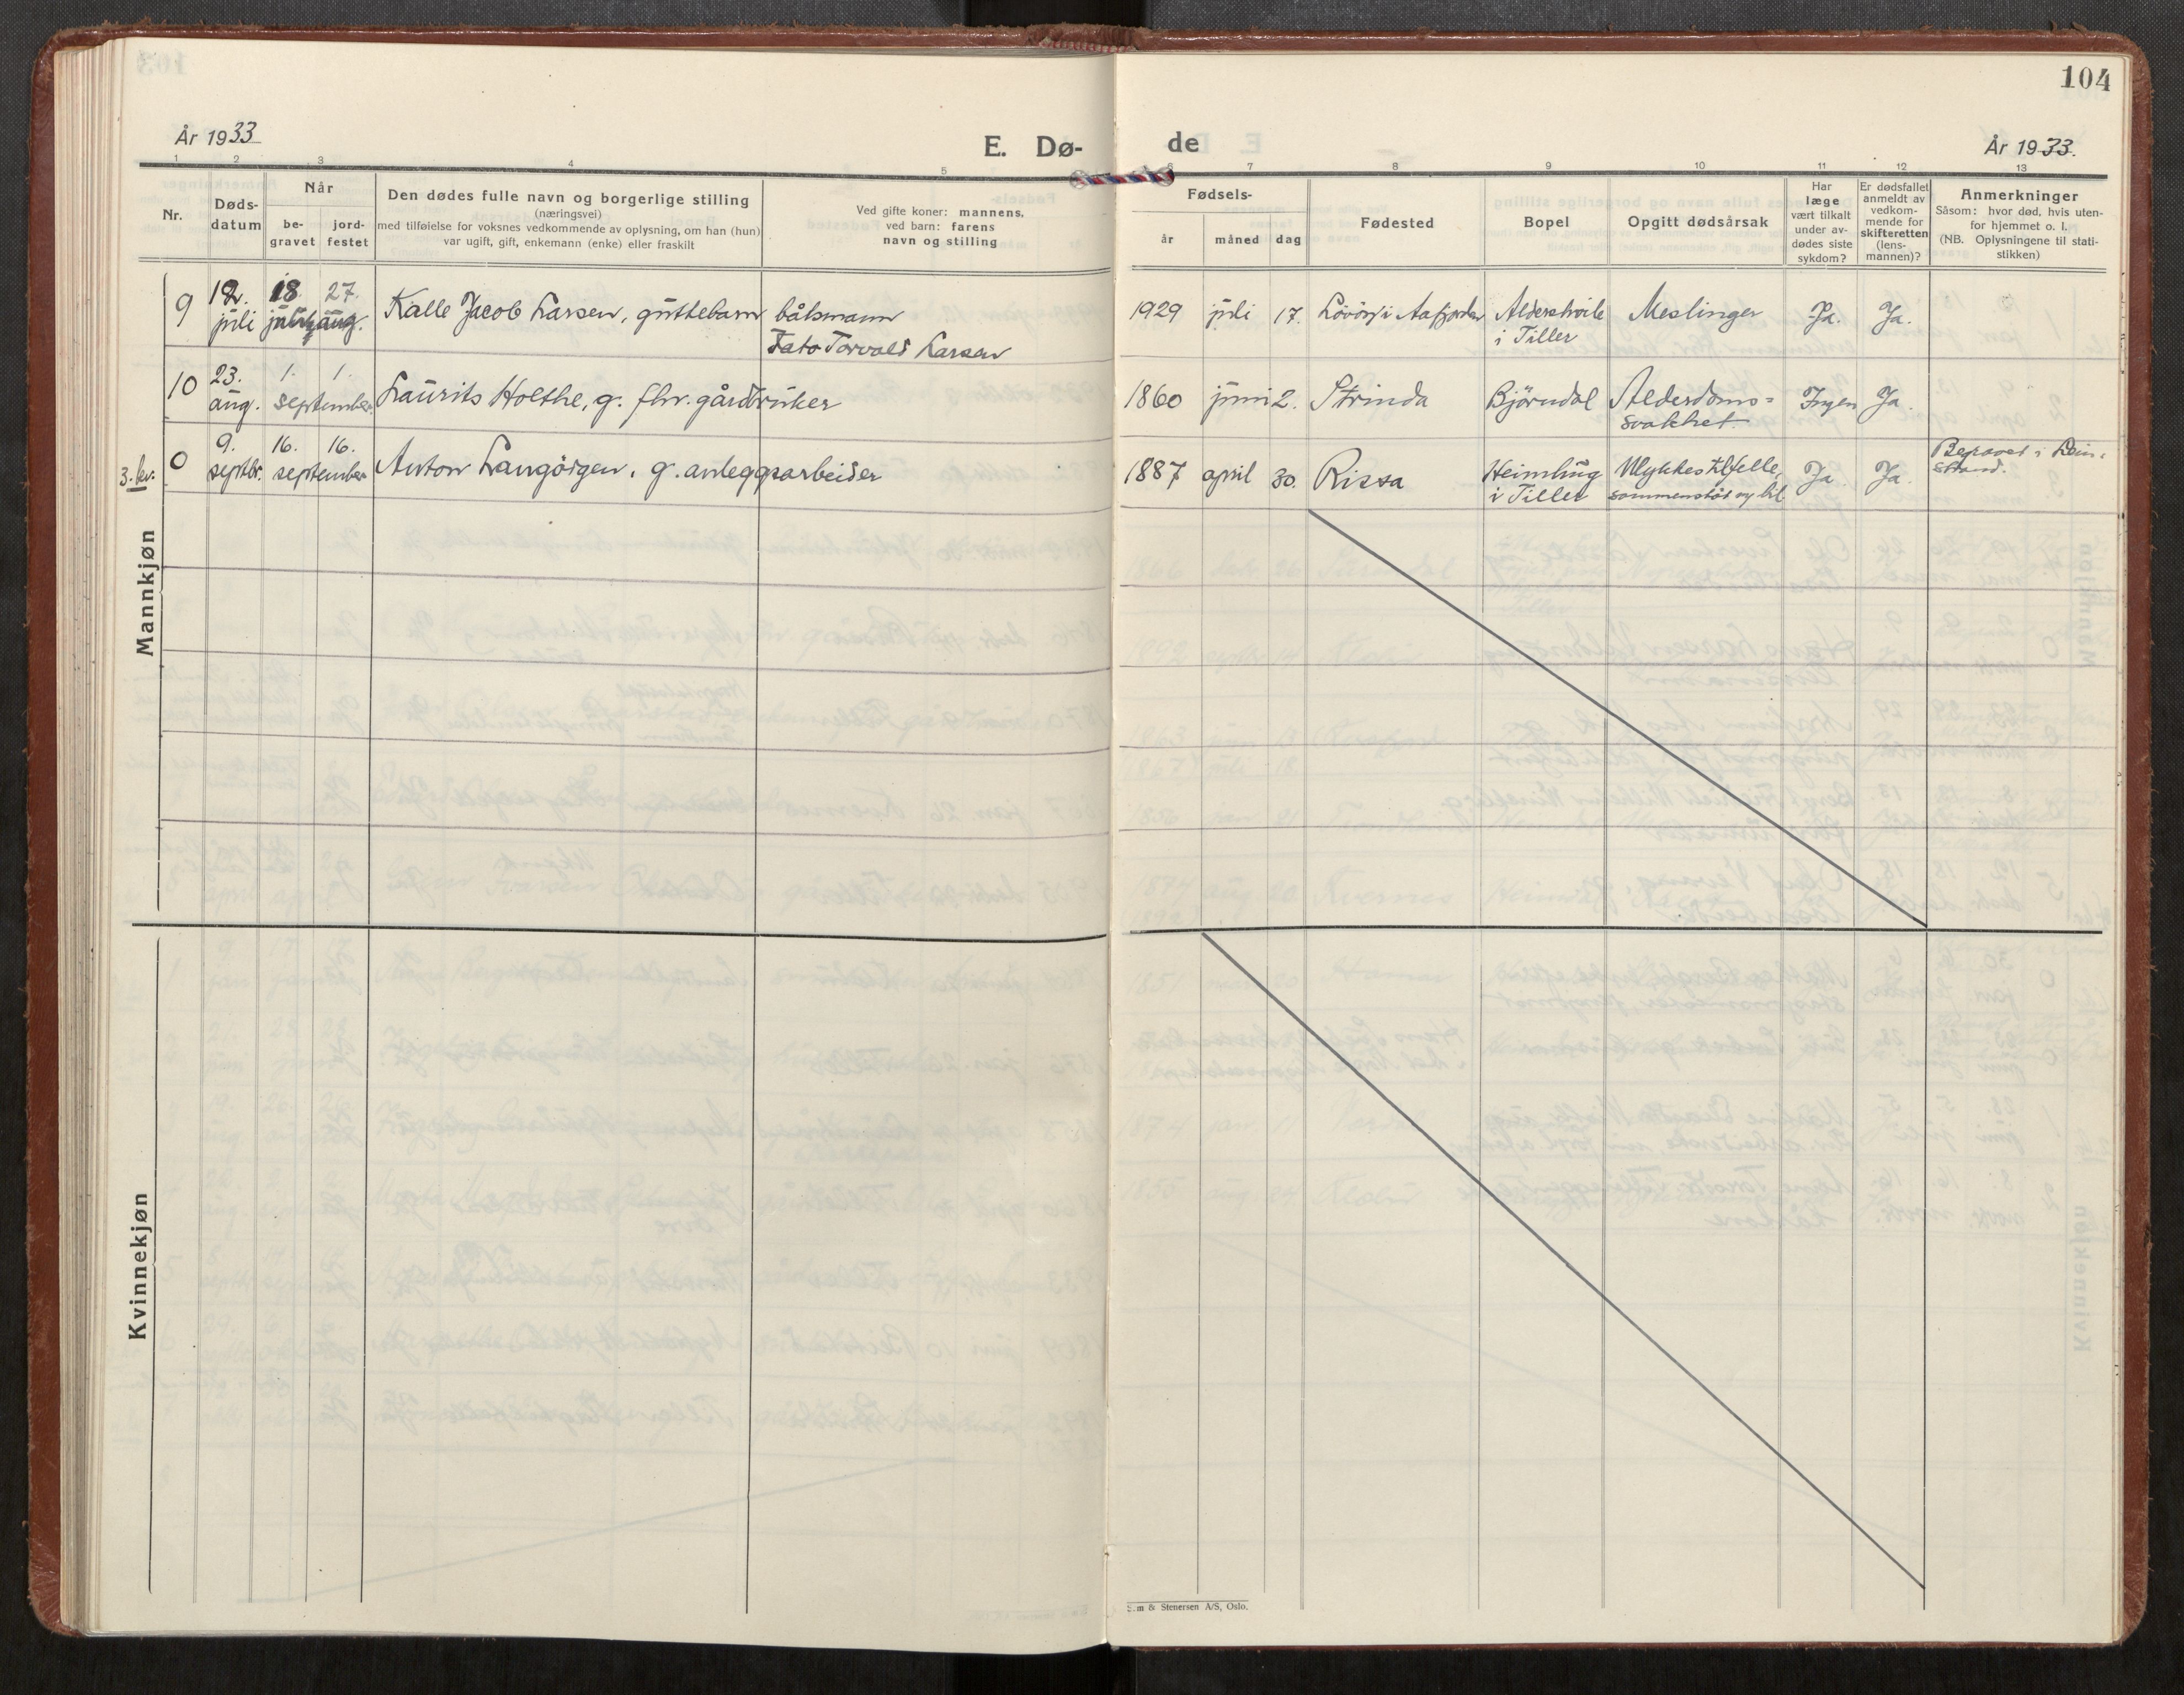 104
År 1933
E. Dø-
de
År 1933.
1 2 3 4 5 6 7 8 9 10 11 12 13
Nr.
Døds-
datum
Når
be-
gravet
jord-
festet
Den dødes fulle navn og borgerlige stilling
(næringsvei)
med tilføielse for voksnes vedkommende av oplysning, om han (hun)
var ugift, gift, enkemann (enke) eller fraskilt
Ved gifte koner: mannens,
ved barn: farens
navn og stilling
Fødsels-
år
måned
dag
Fødested
Bopel
Opgitt dødsårsak
Har
læge
vært tilkalt
under av-
dødes siste
sykdom?
Er dødsfallet
anmeldt av
vedkom-
mende for
skifteretten
(lens-
mannen)?
Anmerkninger
Såsom: hvor død, hvis uten-
for hjemmet o. l.
(NB. Oplysningene til stati-
stikken)
Mannkjøn
9 12. 18. 27.
juli aug. Kalle Jacob Larsen, guttebarn båtsmann
Tato Torvald Larsen
1929 juli 17. i Aafjorden Meslinger Ja. Ja.
i Tiller
10 23. 1. 1.
aug. september Laurits Holthe, g. fhv. gårdbruker
1860 juni 2. Strinda Björndal Alderdoms= Ingen Ja.
svakhet
3. kv. 0 9. 16. 16.
septbr. september Anton Langörgen, g. anleggsarbeider
1887 april 30. Rissa Heimhug Ulykkestilfelle, Ja. Ja. Begravet i Lein-
i Tiller sammenstöt m. bil strand.
Kvinnekjøn
m & Stenersen A/S, Oslo.